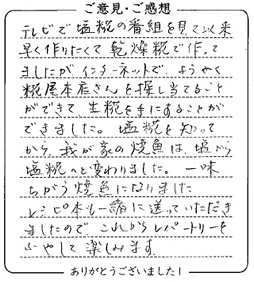 ご意見・ご感想
テレビで塩糀の番組を見て以来
早く作りたくて乾燥糀で作って
ましたがインターネットで、ようやく
糀屋本店さんを探し当てること
ができて、生糀を手にすることが
できました。塩糀を知って
から、我が家の焼魚は、塩から
塩糀へと変わりました。一味
ちがう焼魚になりました
レシピ本も一緒に送っていただき
ましたので、これからレパートリーを
ふやして楽しみます
ありがとうございました！